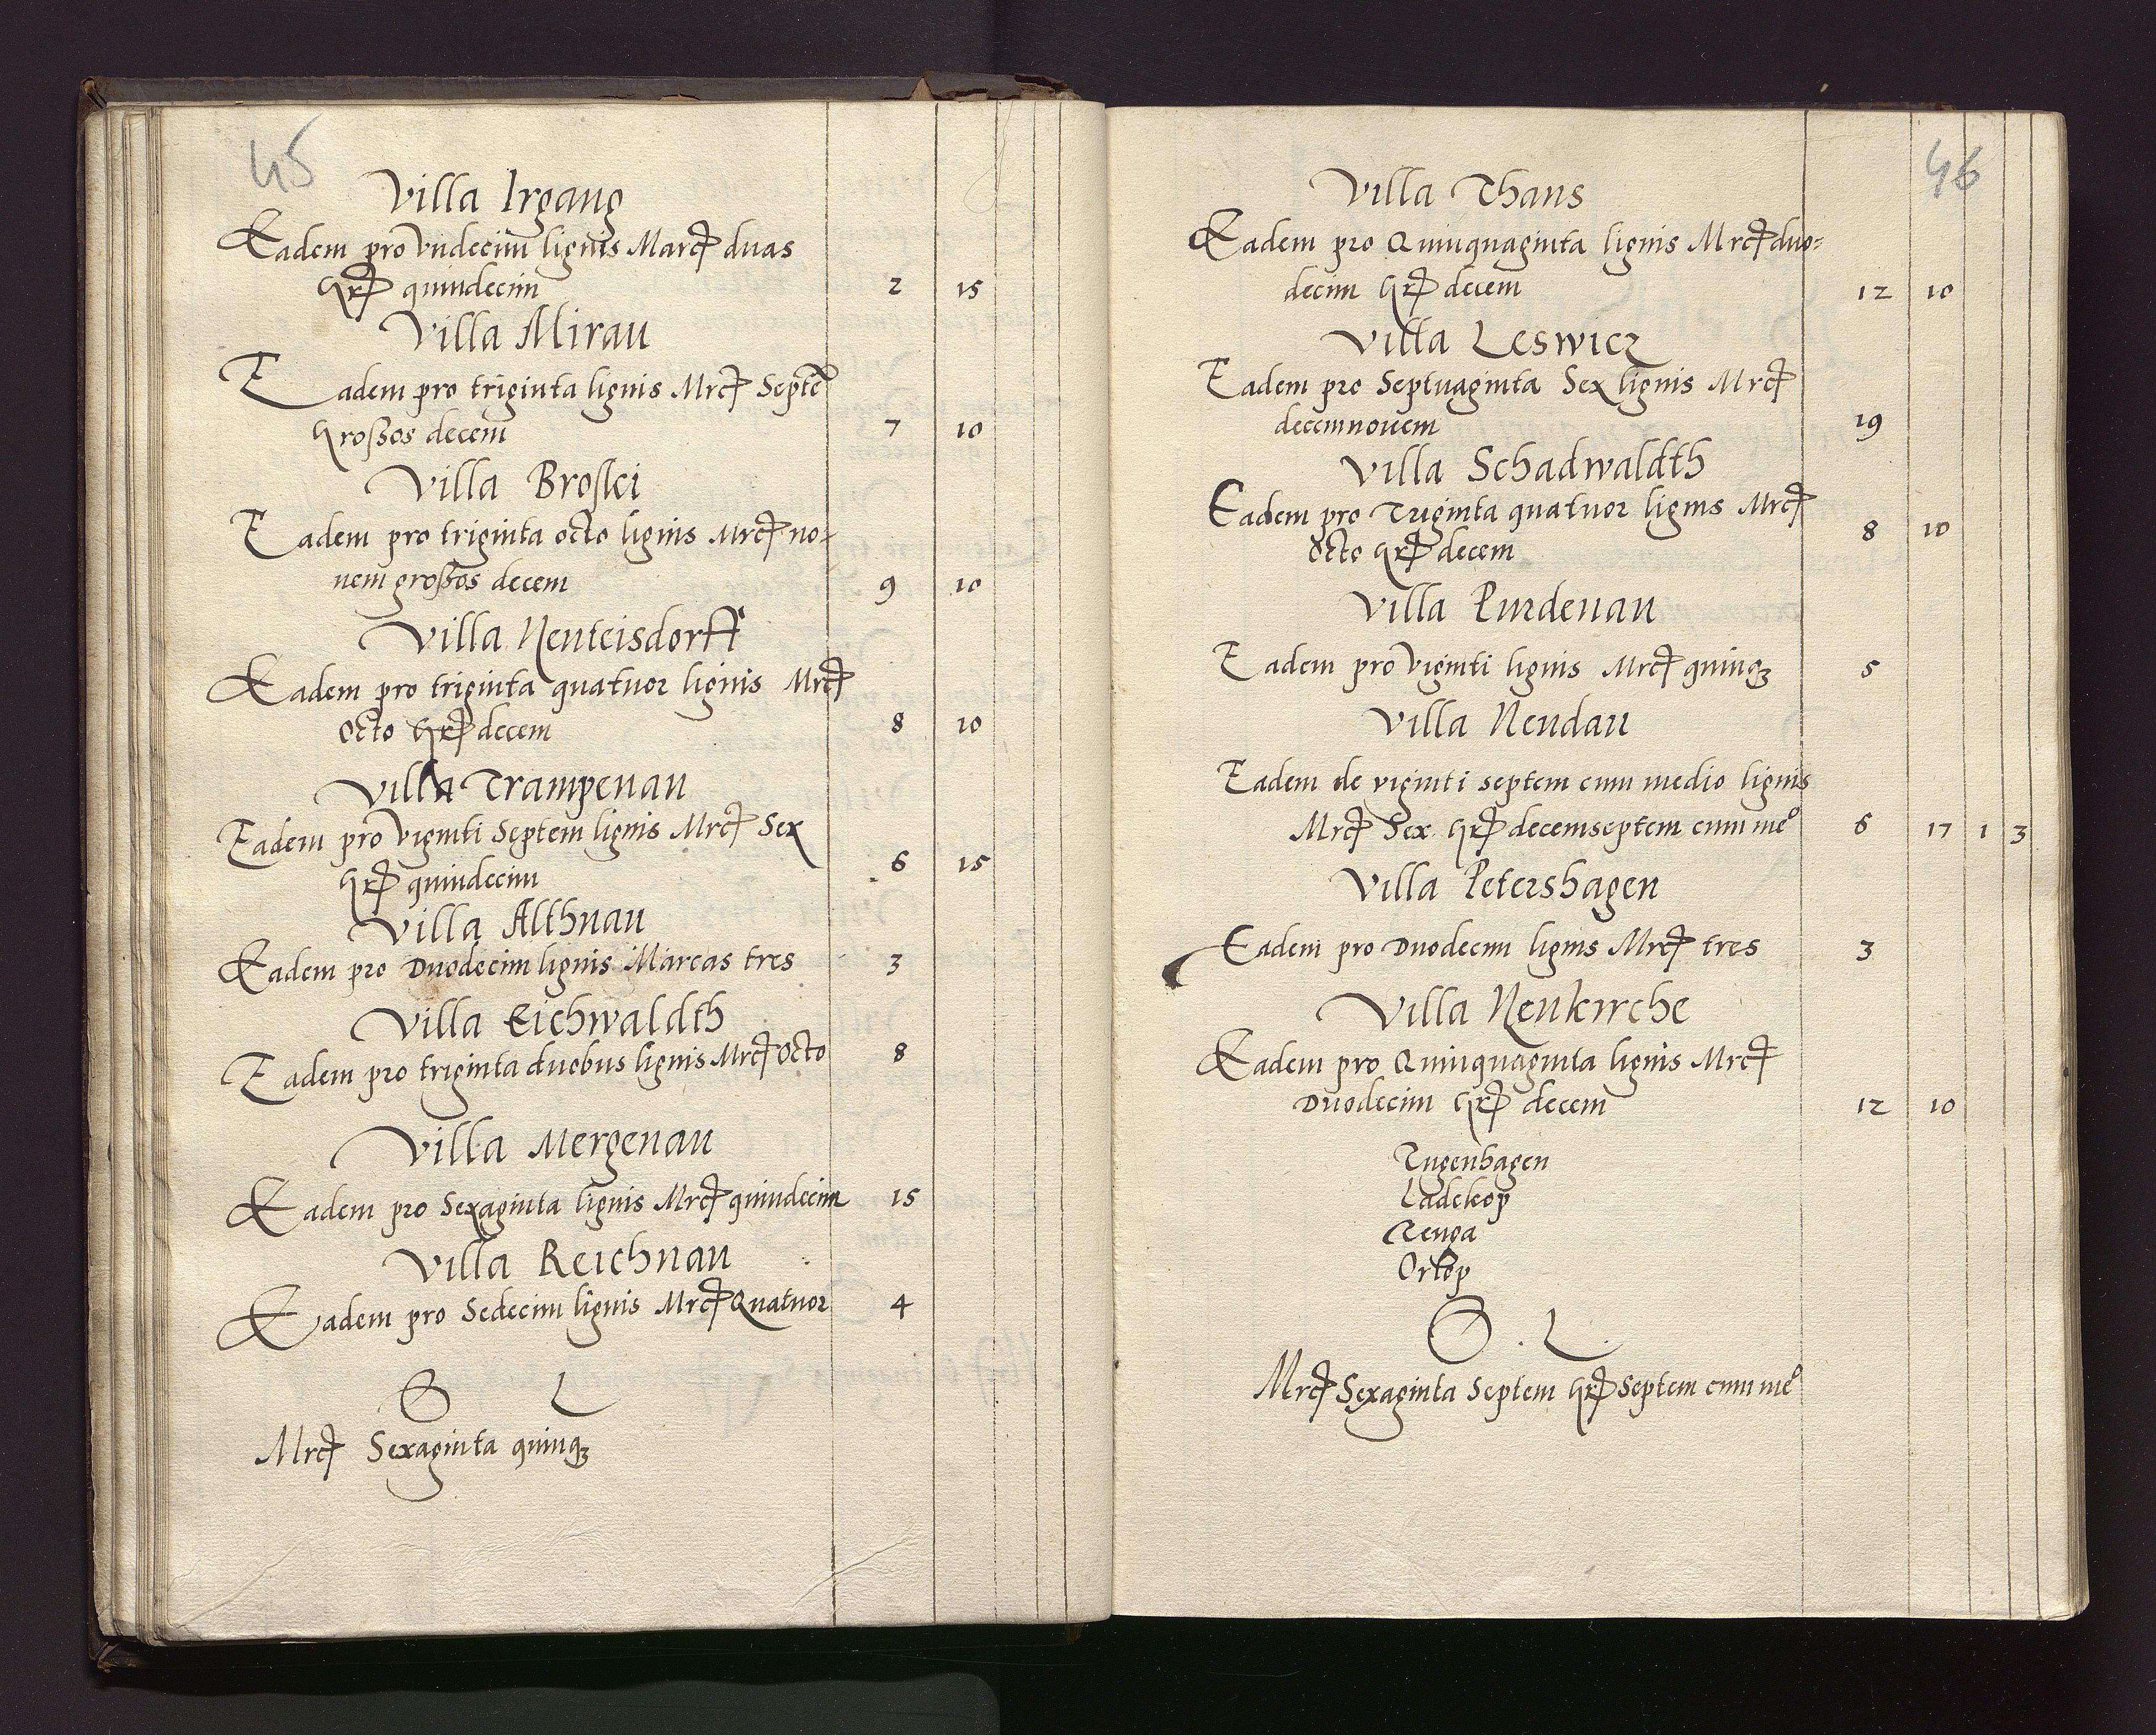 45
Villa Irgang
Eadem pro Vndecim lignis Marcȩ duas
Grȩ quindecim 2 15
Villa Mirau
Eadem pro triginta lignis Mrcȩ Septē
Großos decem 7 10
Villa Broski
Eadem pro triginta octo lignis Mrcȩ no-
uem großos decem 9 10
Villa Neuteisdorff
Eadem pro triginta quatuor lignis Mrcȩ
Octo Grȩ decem 8 10
Villa Trampenau
Eadem pro Viginti Septem lignis Mrcȩ Sex
Grȩ quindecim 6 15
Villa Althnau
Eadem pro Duodecim lignis Marcas tres 3
Villa Eichwaldth
Eadem pro triginta duobus lignis Mrcȩ Octo 8
Villa Mergenau
Eadem pro Sexaginta lignis Mrcȩ quindecim 15
Villa Reichnau
Eadem pro Sedecim lignis Mrcȩ Quatuor 4
S L
Mrcȩ Sexaginta quinqꝫ
46
Villa Thans
Eadem pro Quinquaginta lignis Mrcȩ duo=
decim Grȩ decem 12 10
Villa Leswicz
Eadem pro Septuaginta Sex lignis Mrcȩ
decemnouem 19
Villa Schadwaldth
Eadem pro Triginta quatuor lignis Mrcȩ
Octo Grȩ decem 8 10
Villa Purdenau
Eadem pro Viginti lignis Mrcȩ quinqꝫ 5
Villa Nendau
Eadem de viginti septem cum medio lignis
Mrcȩ Sex Grȩ decemseptem cum meº 6 17 1 3
Villa Petershagen
Eadem pro Duodecim lignis Mrcȩ tres 3
Villa Neukirche
Eadem pro Quinquaginta lignis Mrcȩ
Duodecim Grȩ decem 12 10
Tugenhagen
Ladekop
Tenga
Orlop
S . L .
Mrcȩ Sexaginta Septem Grȩ Septem cum meº